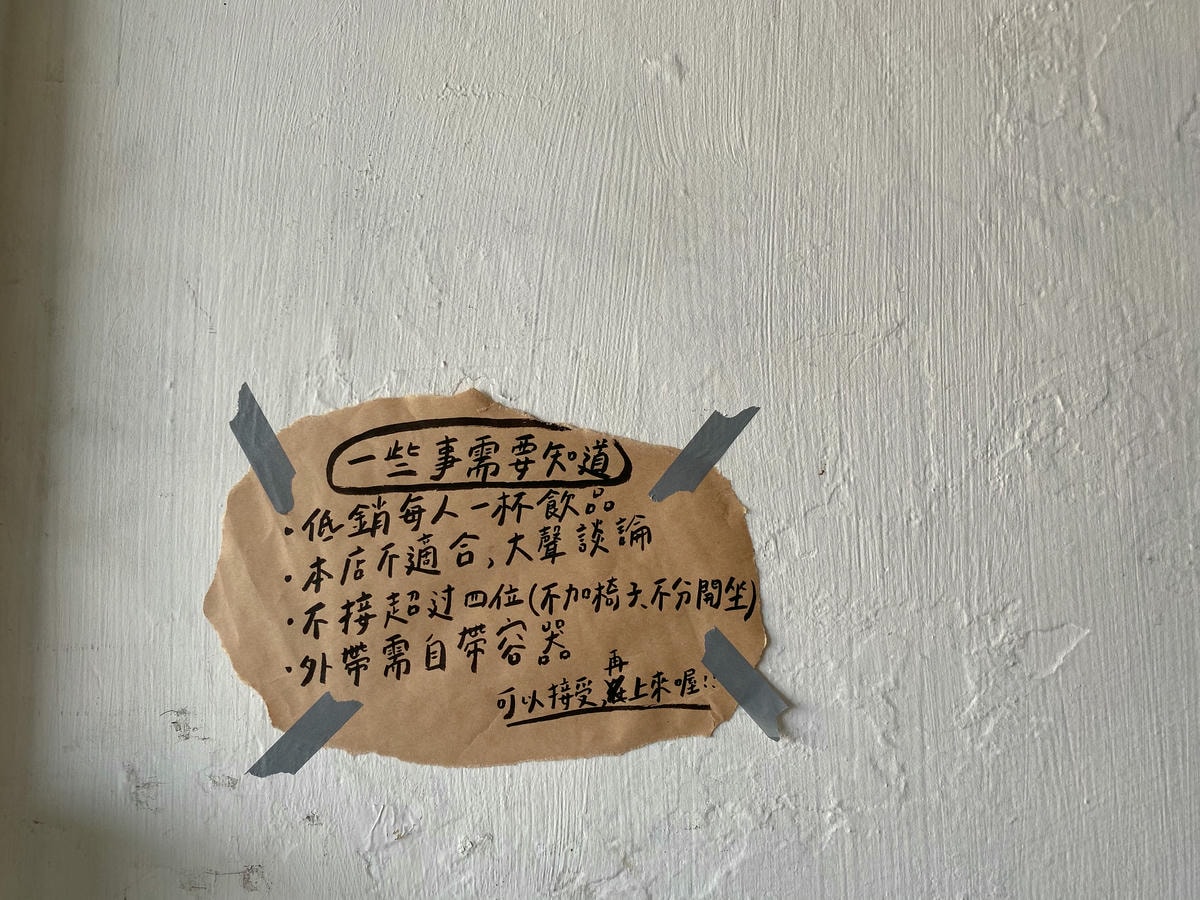 一些事需要知道
·低銷每人一杯飲品
·本店不適合,大聲談論
·不接超过四位(不加椅子、不分開坐)
·外帶需自帶容器
可以接受,再上來喔!!